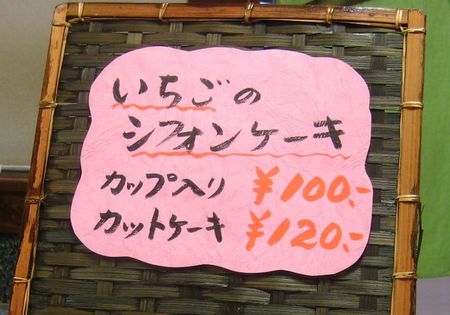 いちごの
シフォンケーキ
カップ入り ¥100.-
カットケーキ ¥120.-